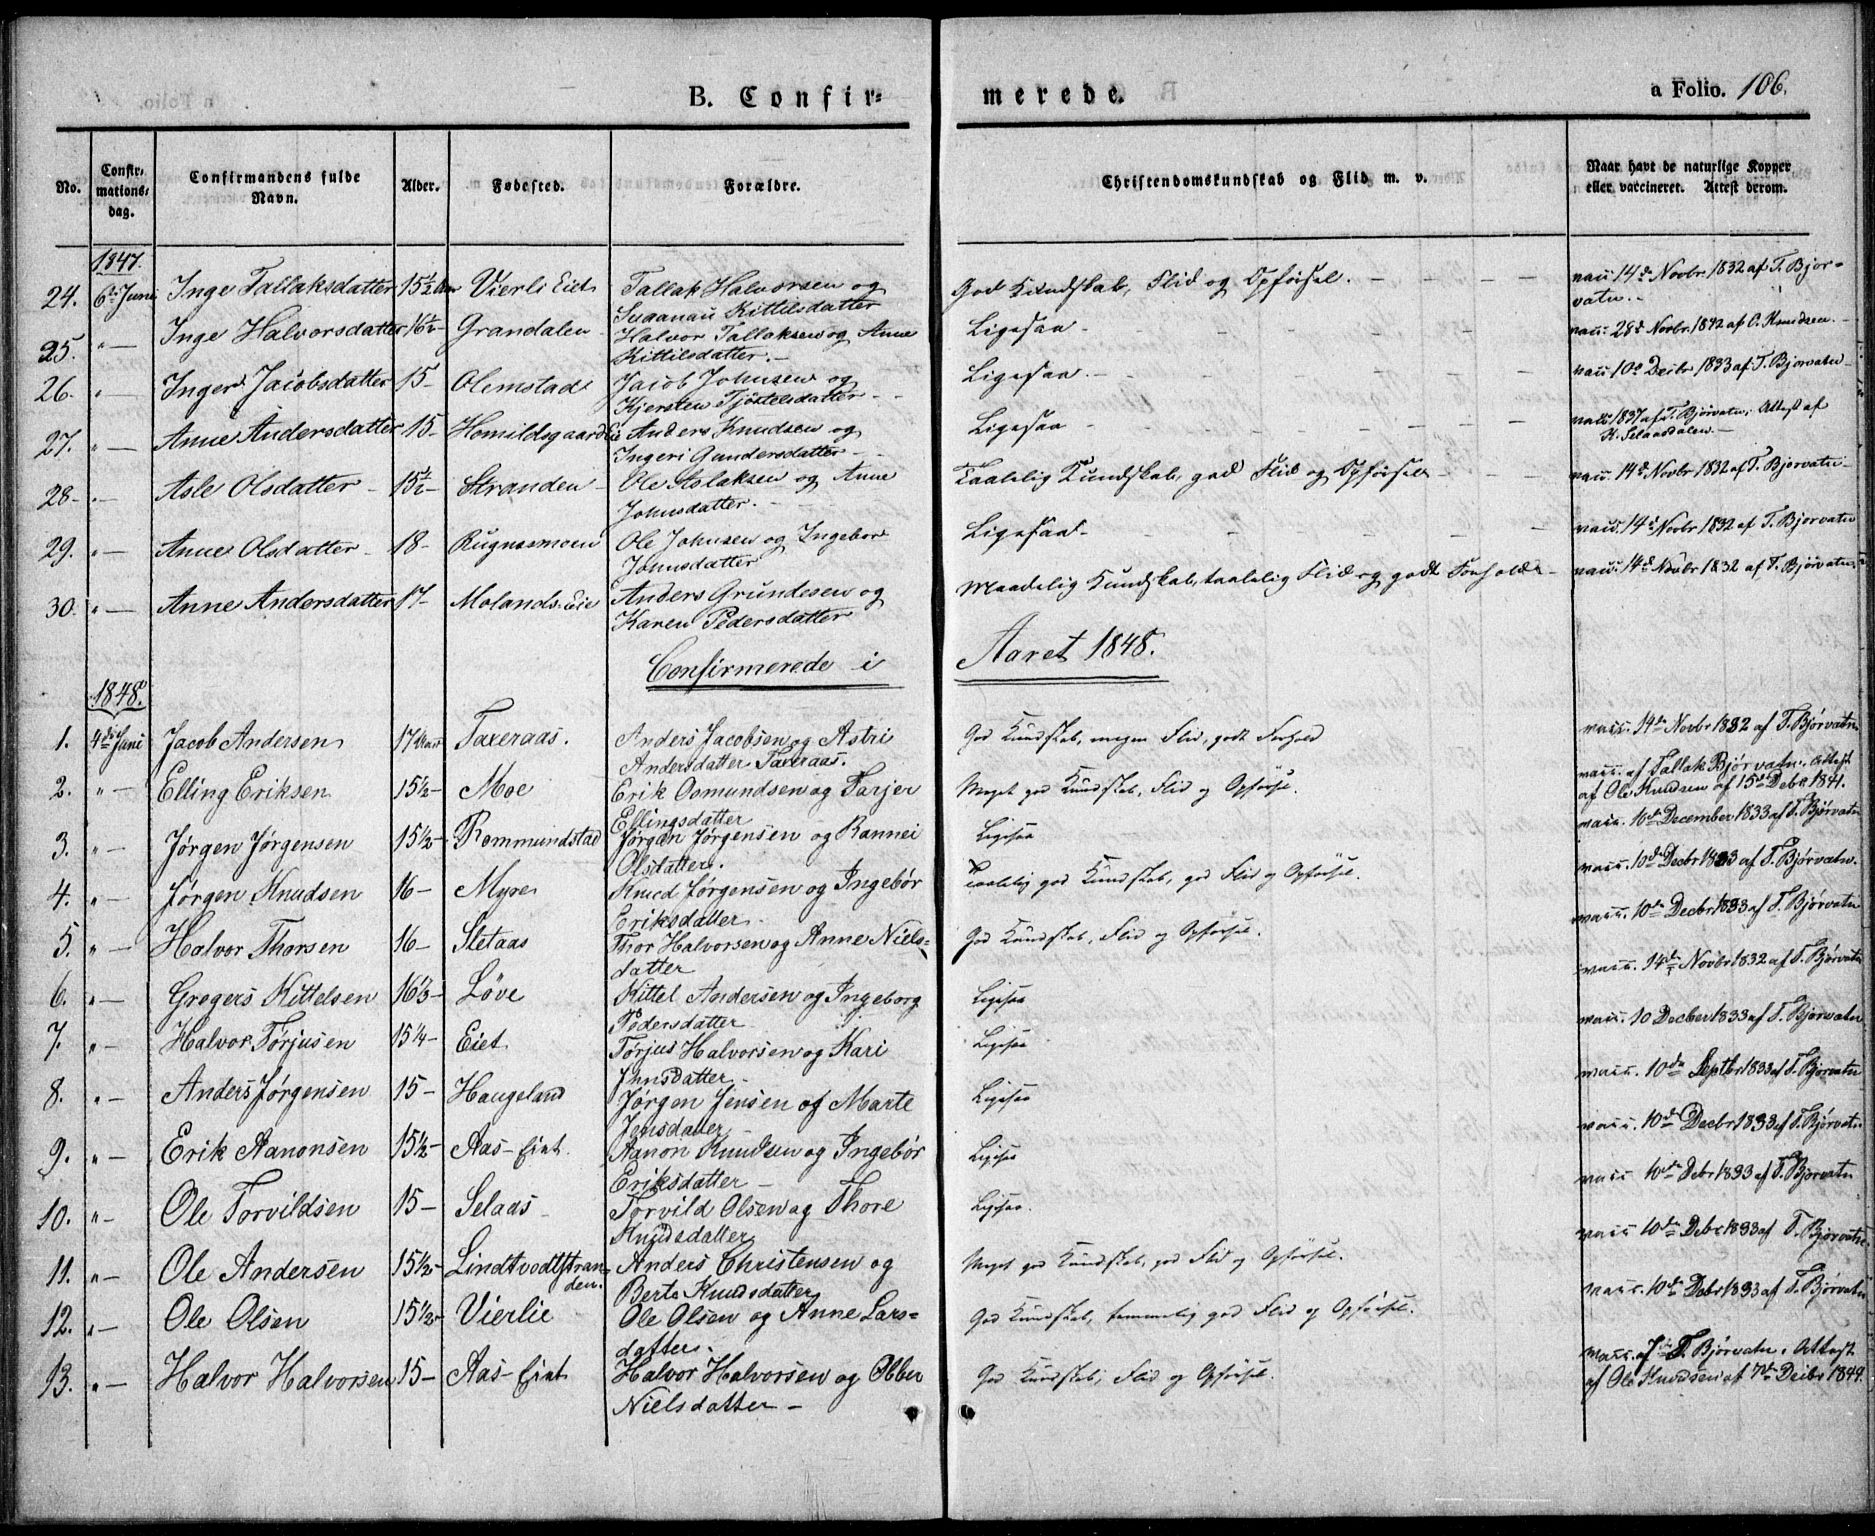 B. Confir=
merede.
a Folio. 106.
No.
Confir=
mations=
dag.
Confirmandens fulde
Navn.
Alder.
Fødested.
Forældre.
Christendomskundskab og Flid m. v.
Naar havt de naturlige Kopper
eller vaccineret. Attest derom.
1847.
24. 6te Juni Inge Tallaksdatter 15½ Aar Vierli Eiet Tallak Halvorsen og God Kundskab, Flid og Opførsel. vacc 14de Novbr. 1832 af T. Bjor-
Kittilsdatter vatn.-
25. " — Inge Halvorsdatter 16½ Grandalen Halvor Tallaksen og Anne Ligesaa vacc. 28de Novbr. 1842 af O. Knudsen.
Kittilsdatter.-
26. " — Inger Jacobsdatter 15- Olimstad Jacob Johnsen og Ligesaa.- vacc 10de Decbr 1833 af T. Bjorvatn
Kjersten Tjøstelsdatter
27. " — Anne Andersdatter 15- Homildsgaard Eie Anders Knudsen og Ligesaa vacc 1837 af T. Bjørvatn, Attest af
Ingeri Gundersdatter K. Selaasdalen.-
28- " — Asle Olsdatter - 15½- Stranden Ole Aslaksen og Anne Taalelig Kundskab, god Flid og Opførsel vacc. 14de Novbr 1832 af T. Bjorvatn
Johnsdatter.-
29. " — Anne Olsdatter 18- Rugnasmoen Ole Johnsen og Ingebor Ligesaa- vacc. 14de Novbr 1832 af T. Bjorvatn
Johnsdatter
30. " — Anne Andersdatter 17- Molands Eie Anders Grundesen og Maadelig Kundskab, taalelig Flid og godt Forhold - vacc. 14de Novbr 1832 af T. Bjørvatn
Karen Pedersdatter
Confirmerede i Aaret 1848.
1848.
1. 4de Juni Jacob Andersen 17 Aar Taxeraas. Anders Jacobsen og Astri God Kundskab, megen Flid, godt Forhold vacc. 14de Novbr 1832 af T. Bjørvatn
Andersdatter Taxeraas.
2. " — Elling Eriksen 15½- Moe Erik Osmundsen og Tarjer Meget god Kundskab, Flid og Opførsel. vacc. af Tallak Bjørvatn. Attest
Ellingsdatter af Ole Knudsen af 15de Debr 1841.
3. " — Jørgen Jørgensen 15½- Rommundstad Jørgen Jørgensen og Rannei Ligesaa vacc. 10de December 1833 af T. Bjørvatn
Olsdatter.
4. " — Jørgen Knudsen 16- Myre Knud Jørgensen og Ingebør Taalelig god Kundskab, god Flid og Opførsel. vacc. 10de Decbr 1833 af T. Bjørvatn.
Eriksdatter
5. " — Halvor Thorsen 16- Sletaas Thor Halvorsen og Anne Niels= God Kundskab, Flid og Opførsel. vacc. 10de Decbr 1833 af T. Bjørvatn
datter
6. " — Gregers Kittelsen 16⅔- Løve Kittel Andersen og Ingeborg Ligesaa vacc. 14de Novbr 1832 af T. Bjørvatn
Pedersdatter
7. " — Halvor Tørjusen 15¼- Eiet Tørjus Halvorsen og Kari Ligesaa vacc. 10 Decber 1833 af T. Bjørvatn
Jensdatter
8. " — Anders Jørgensen 15- Haugeland Jørgen Jensen og Marte Ligesaa vacc. 10de Septbr 1833 af T. Bjorvatn
Jensdatter
9. " — Erik Aanonsen 15½- Aas-Eiet Aanon Knudsen og Ingebør Ligesaa vacc. 10de Decbr 1833 af T. Bjørvatn
Eriksdatter
10. " — Ole Torvildsen 15- Selaas Torvild Olsen og Thore Ligesaa. vacc 10de Debr 1833 af T. Bjorvatn
Knudsdatter
11. " — Ole Andersen 15½- Lindtvedtstran= Anders Christensen og Meget god Kundskab, god Flid og Opførsel. vacc 10de Debr 1833 af T. Bjørvatn
den. Berte Knudsdatter
12. " — Ole Olsen 15½- Vierlie Ole Olsen og Anne Lars= God Kundskab, temmelig god Flid og Opførsel. vacc. 10de Debr 1833 af T. Bjørvatn
datter.
13. " — Halvor Halvorsen 15- Aas-Eiet Halvor Halvorsen og Obber God Kundskab, Flid og Opførsel. vacc. af T. Bjørvatn. Attest
Nielsdatter - af Ole Knudsen af 7de Decbr 1844.